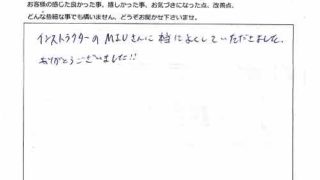 お客様の感じた良かった事、嬉しかった事、お気づきになった点、改善点、
どんな些細な事でも構いません、どうぞお聞かせ下さいませ。
インストラクターのMIUさんに本当によくしていただきました。
ありがとうございました!!